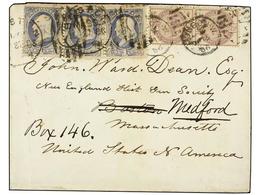 John Ward Dean, Esq.
New England Hist. Gen Society
Boston Medford
Box 146.
Massachusetts
United States N America